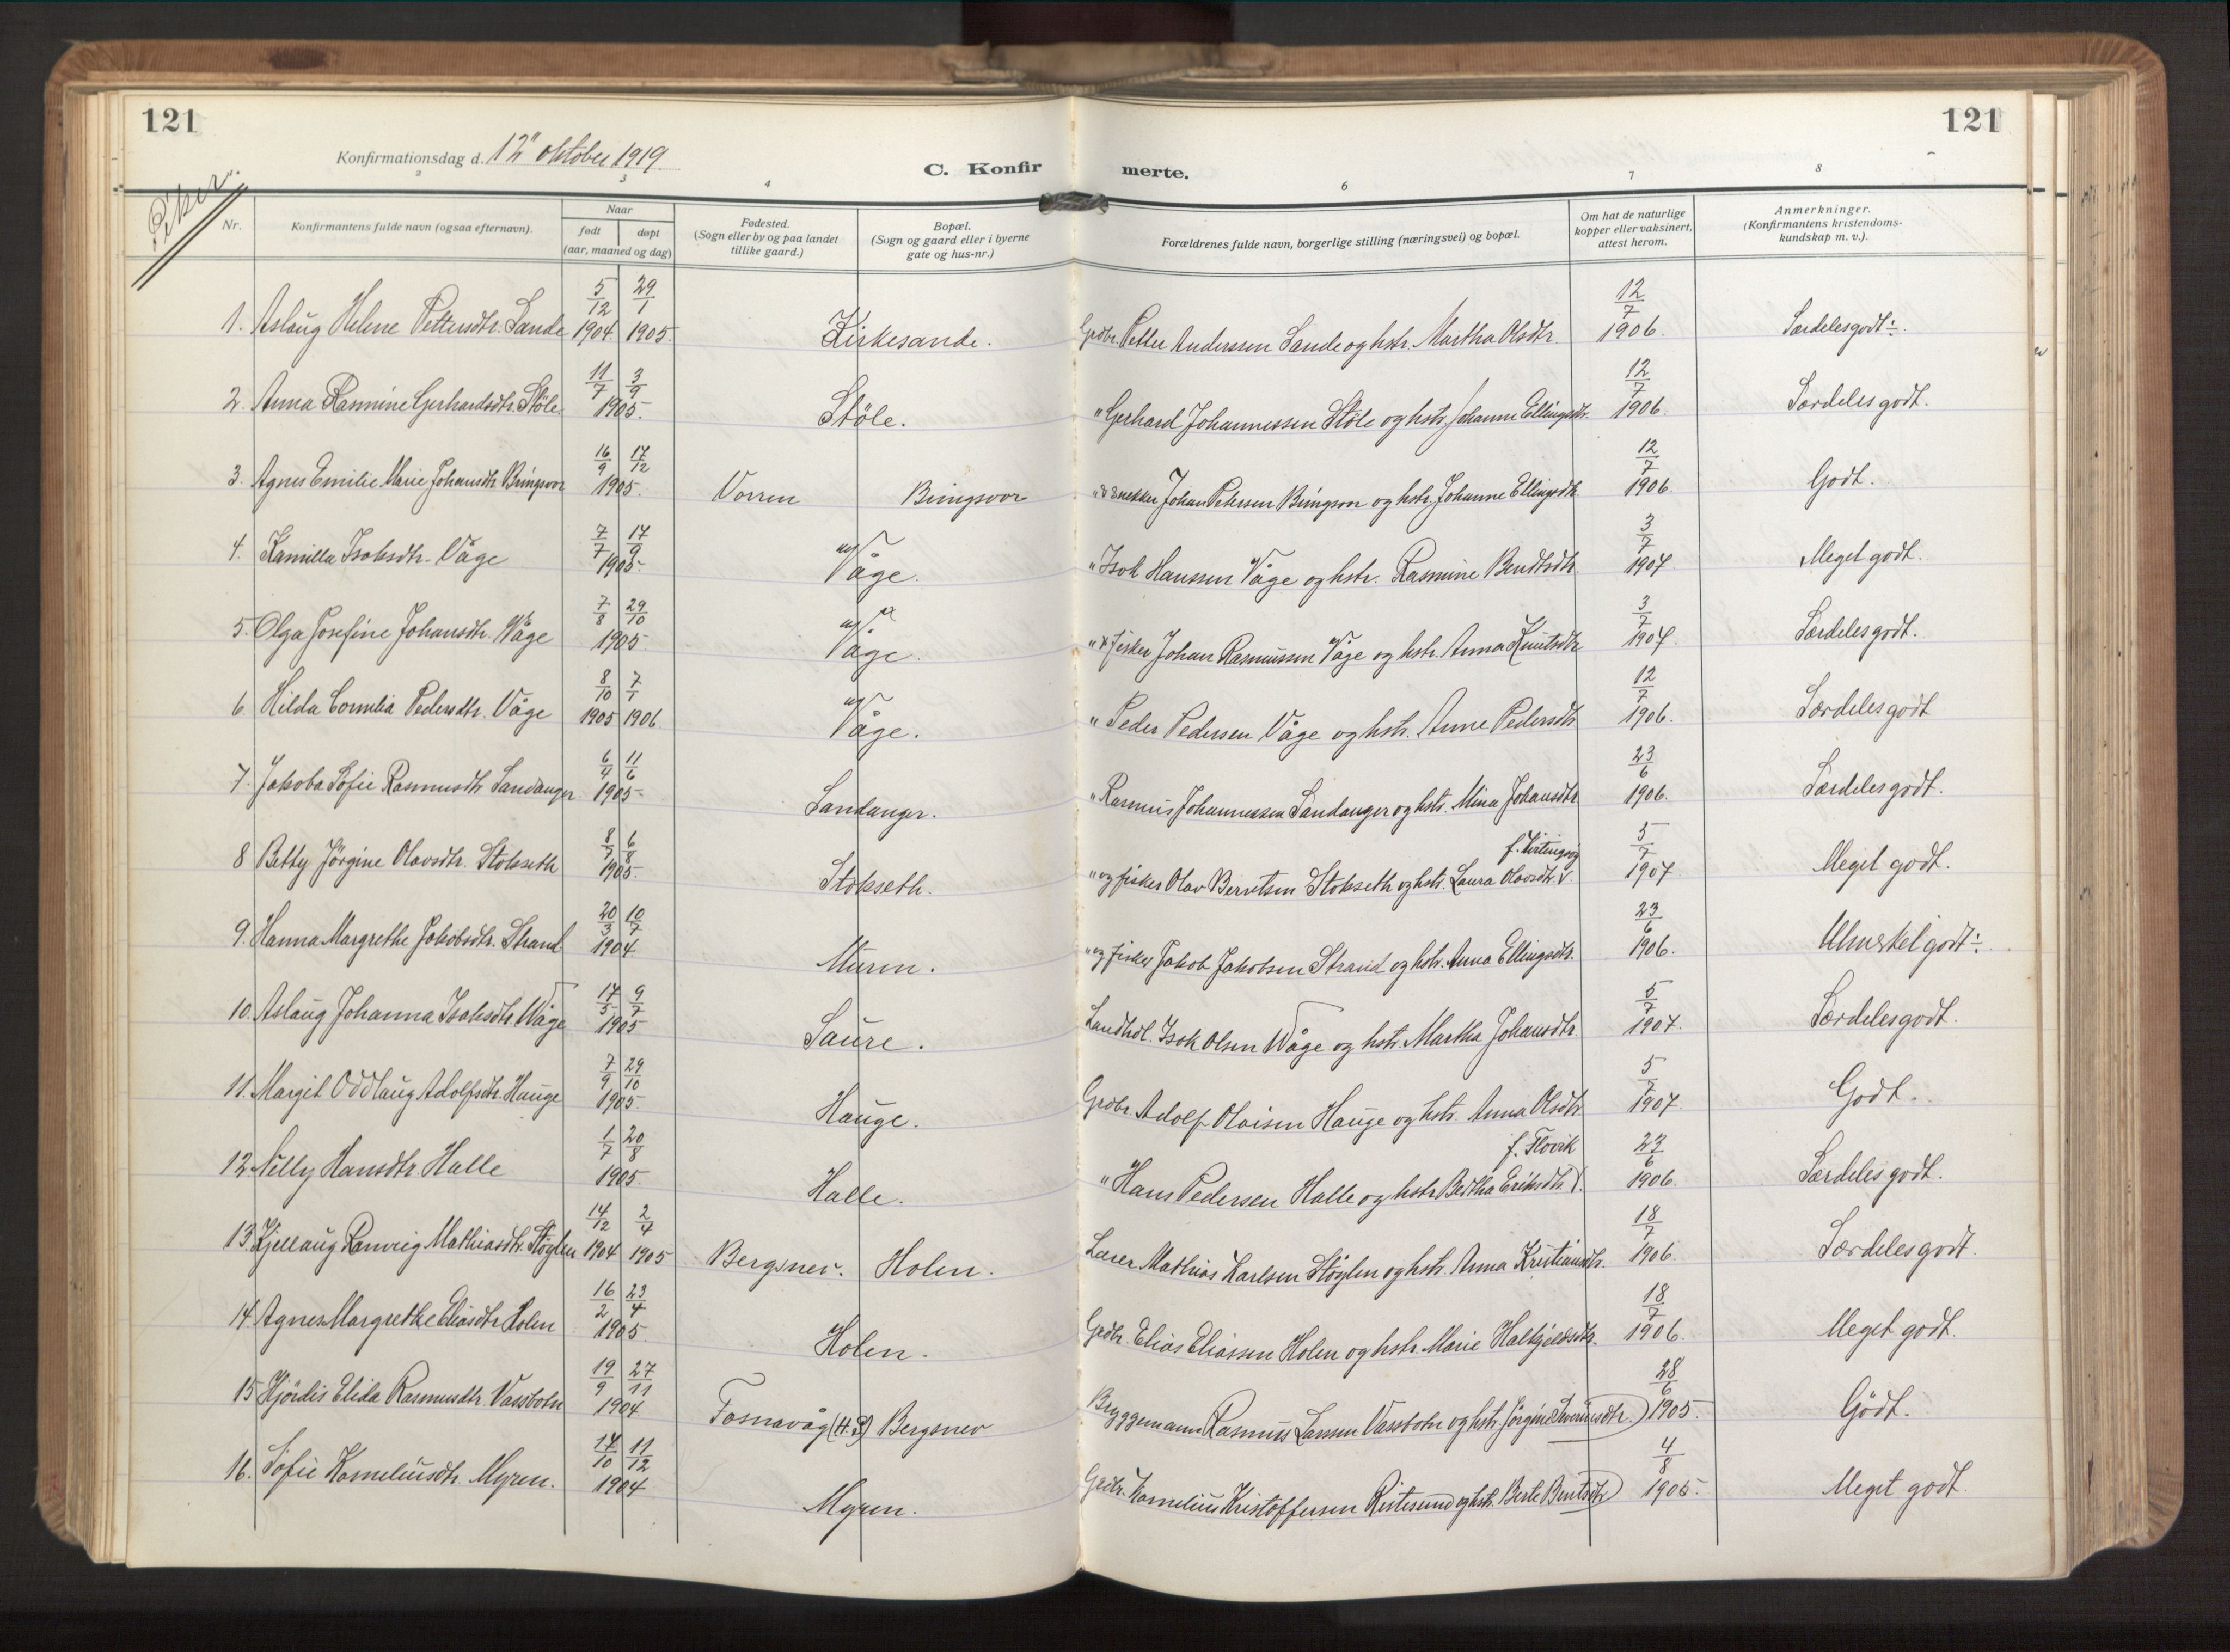 121
121
Konfirmationsdag d. 12" oktober 1919.
C. Konfirmerte.
Piker.
2 3 4 6 7 8
Nr.
Konfirmantens fulde navn (ogsaa efternavn).
Naar
født døpt
(aar, maaned og dag)
Fødested.
(Sogn eller by og paa landet
tillike gaard.)
Bopæl.
(Sogn og gaard eller i byerne
gate og hus-nr.)
Forældrenes fulde navn, borgerlige stilling (næringsvei) og bopæl.
Om hat de naturlige
kopper eller vaksinert,
attest herom.
Anmerkninger.
(Konfirmantens kristendoms-
kundskap m. v.).
1. Aslaug Helene Pettersdtr. Sande 5/12 1904 29/1 1905. Kirkesande. Grdbr. Petter Anderssen Sande og hstr. Martha Olsdtr. 12/7 1906. Særdelesgodt÷.
2. Anna Rasmine Gerhardsdtr. Støle 11/7 3/9 1905. Støle. " Gerhard Johannessen Støle og hstr. Johanne Ellingsdtr. 12/7 1906. Særdeles godt.
3. Agnes Emilie Marie Johansdtr. Bringsvor 16/9 17/12 1905. Vorren Bringsvor " snekker Johan Petersen Bringsvor og hstr. Johanne Ellingsdtr. 12/7 1906. Godt.
4. Kamilla Isaksdtr. Våge 7/7 17/9 1905. Våge. " Isak Hanssen Våge og hstr. Rasmine Bendtsdtr. 3/7 1907 Meget godt.
5. Olga Josefine Johansdtr. Våge 7/8 29/10 1905. Våge. " fisker Johan Rasmussen Våge og hstr. Anna Knutsdtr. 3/7 1907. Særdelesgodt.
6. Hilda Cornelia Pedersdtr. Våge 8/10 1905 7/1 1906. Våge. " Peder Pedersen Våge og hstr. Anne Pedersdtr. 12/7 1906. Særdelesgodt
7. Jakoba Sofie Rasmusdtr. Sandanger 6/4 11/6 1905. Sandanger. " Rasmus Johannessen Sandanger og hstr. Mina Johansdtr. 23/6 1906. Særdelesgodt.
8 Betty Jørgine Olavsdtr. Stokseth 8/7 6/8 1905. Stokseth. " og fisker Olav Berntsen Stokseth og hstr. Laura Olavsdtr. 5/7 1907. Meget godt.
9. Hanna Margrethe Jakobsdtr. Strand 20/3 10/7 1904 Muren. " og fisker Jakob Jakobsen Strand og hstr. Anna Ellingsdtr. 23/6 1906. Utmerket godt÷.
10. Aslaug Johanna Isaksdtr. Wåge 17/5 9/7 1905 Saure. Landhdl. Isak Olsen Wåge og hstr. Martha Johansdtr. 5/7 1907. Særdelesgodt.
11. Margit Oddlaug Adolfsdtr. Hauge 7/9 29/10 1905. Hauge. Grdbr. Adolf Olaisen Hauge og hstr. Anna Olsdtr. 5/7 1907. Godt.
12. Nelly Hansdtr. Halle 1/7 20/8 1905. Halle. " Hans Pedersen Halle og hstr. Bertha Eriksdtr. f. Flovik 23/6 1906. Særdeles godt.
13. Kjellaug Ranveig Mathiasdtr. Støylen 14/12 1904 2/4 1905 Bergsnev. Holen. Lærer Mathias Karlsen Støylen og hstr. Anna Kristiansdtr. 18/7 1906. Særdelesgodt.
14. Agnes Margrethe Eliasdtr. Holen 16/2 23/4 1905. Holen. Grdbr. Elias Eliassen Holen og hstr. Marie Halkjelsdtr. 18/7 1906. Meget godt.
15 Hjørdis Elida Rasmusdtr. Vassbotn 19/9 27/11 1904 Fosnavåg (H.Ø) Bergsnev Bryggemann Rasmus Larssen Vassbotn og hstr. Jørgine Iversdtr. 28/6 1905. Godt.
16. Sofie Korneliusdtr. Myren. 17/10 11/12 1904 Myren. Grdbr. Kornelius Kristoffersen Ristesund og hstr. Berte Bentsdtr. 4/8 1905. Meget godt.